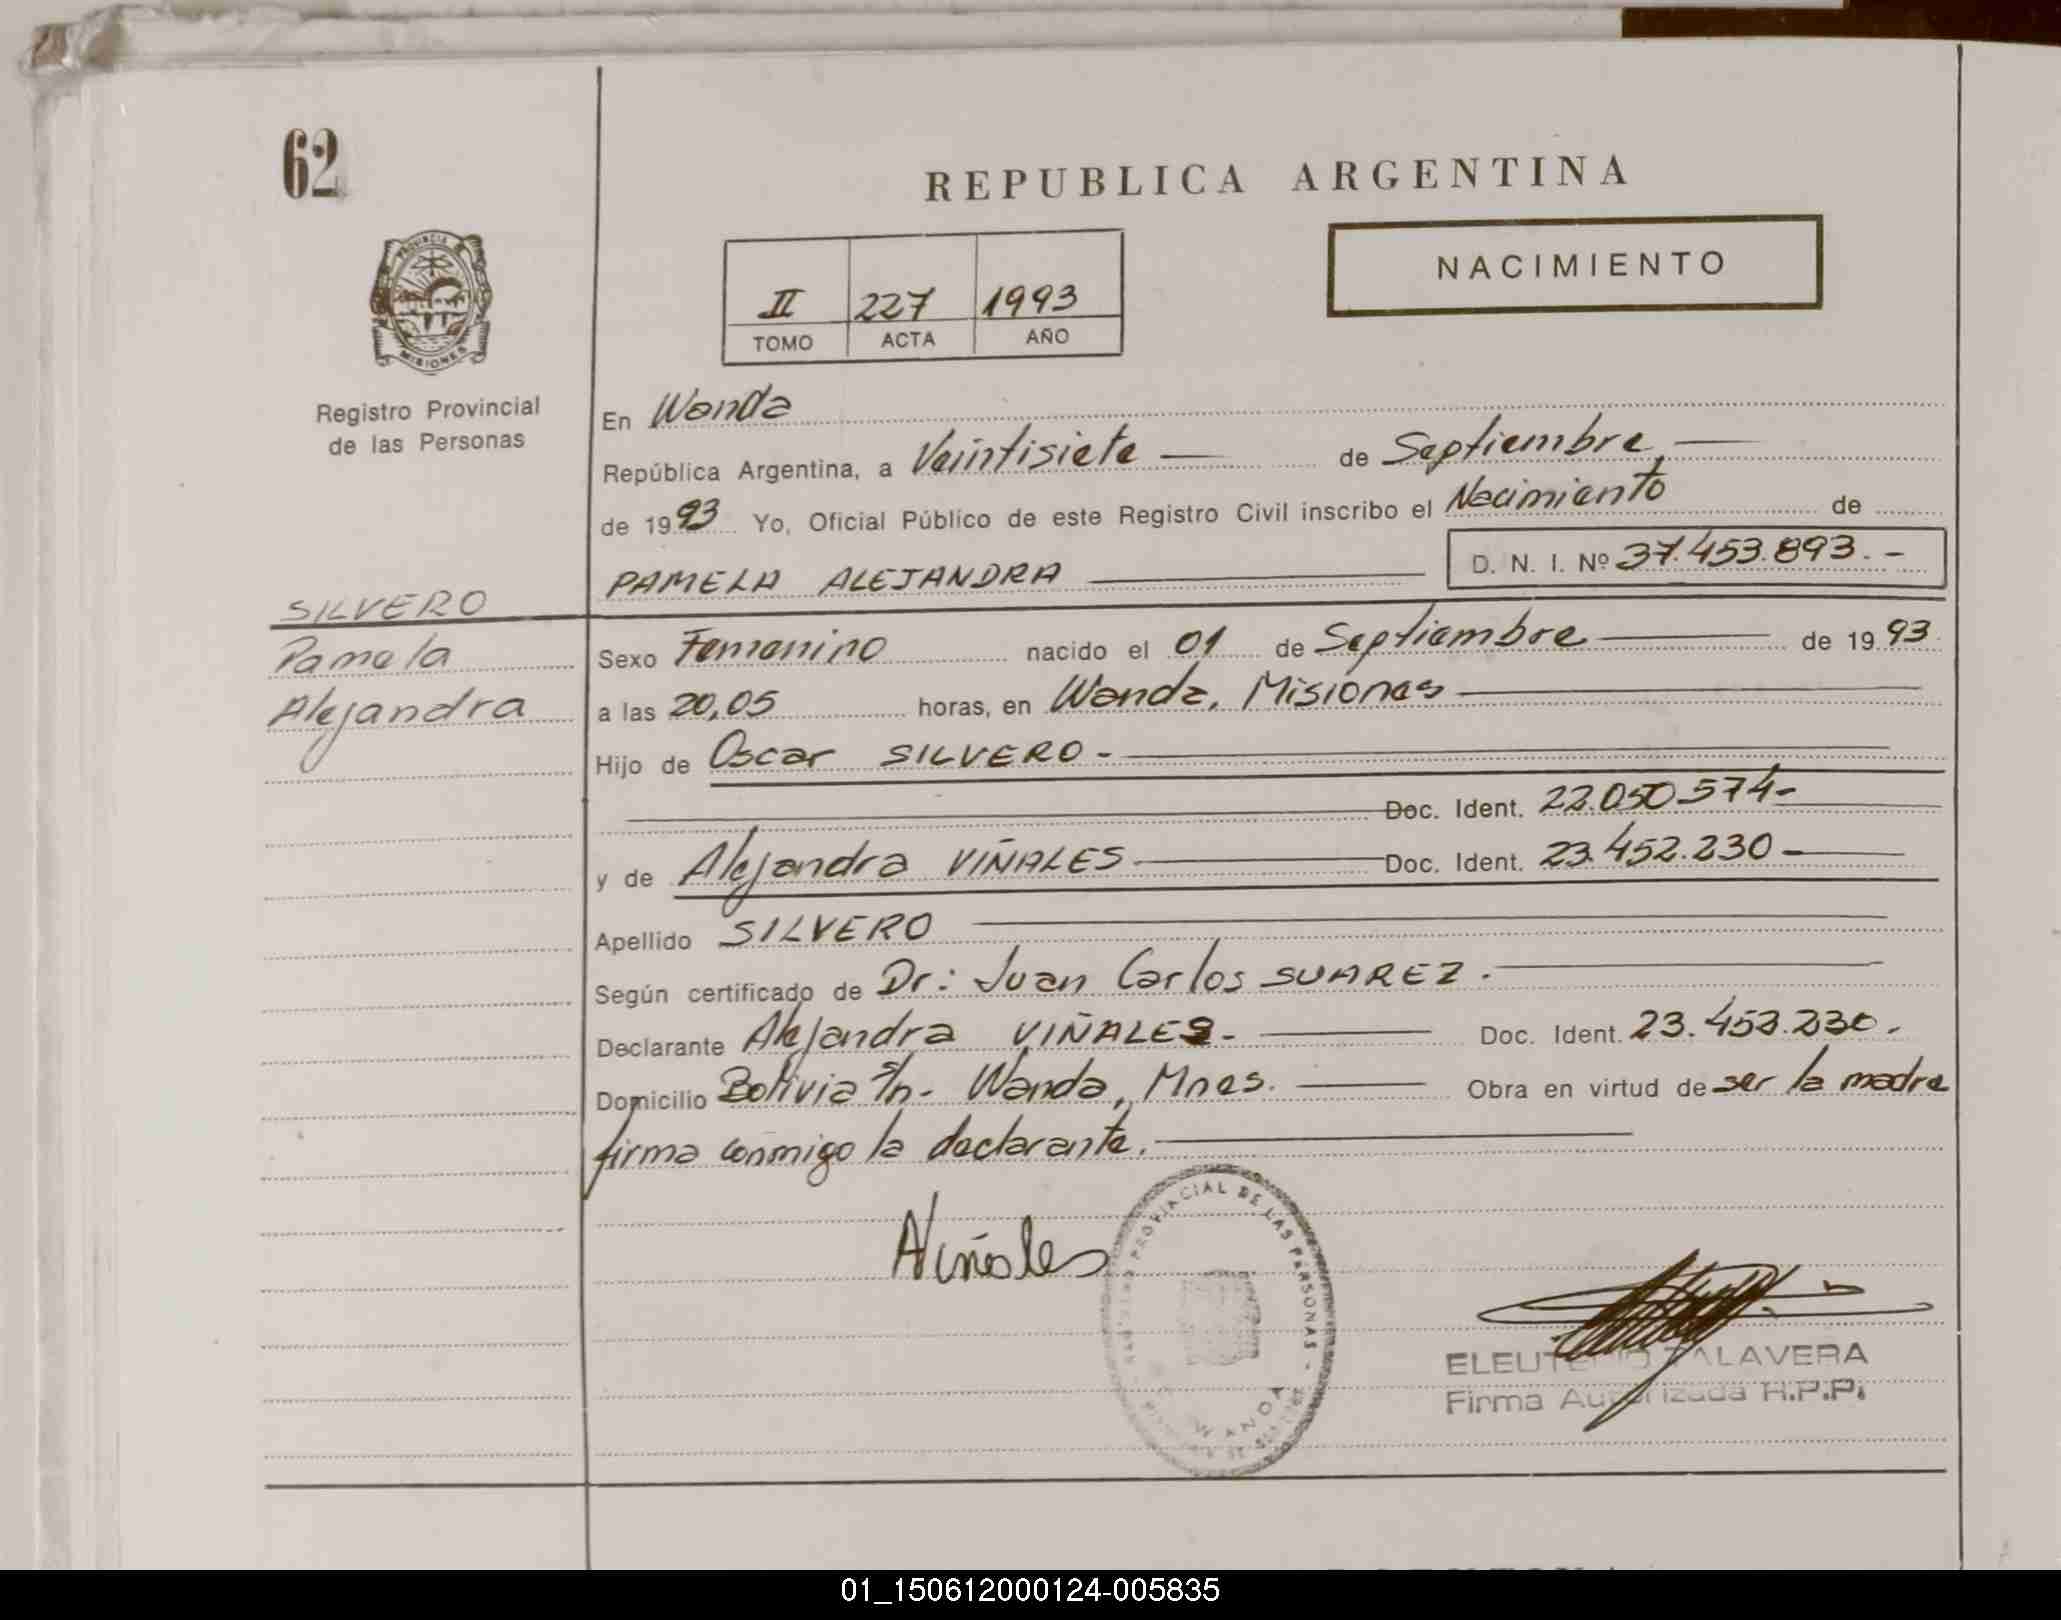 62
REPUBLICA ARGENTINA
NACIMIENTO
II 227 1993
TOMO ACTA AÑO
PROVINCIA DE
MISIONES
Registro Provincial
de las Personas
En Wanda
República Argentina, a Veintisiete de Septiembre
de 1993 Yo, Oficial Público de este Registro Civil inscribo el Nacimiento de
PAMELA ALEJANDRA D. N. I. Nº 37.453.893.-
SILVERO
Pamela
Alejandra
Sexo Femenino nacido el 01 de Septiembre de 1993
a las 20,05 horas, en Wanda, Misiones
Hijo de Oscar SILVERO.-
Doc. Ident. 22.050.574-
y de Alejandra VIÑALES Doc. Ident. 23.452.230-
Apellido SILVERO
Según certificado de Dr: Juan Carlos SUAREZ.
Declarante Alejandra VIÑALES.- Doc. Ident. 23.452.230.
Domicilio Bolivia s/n- Wanda, Mnes. Obra en virtud de ser la madre
firma conmigo la declarante.
AViñales
PROVINCIAL DE LAS PERSONAS
WANDA
ELEUTERIO TALAVERA
Firma Autorizada R.P.P.
01_150612000124-005835